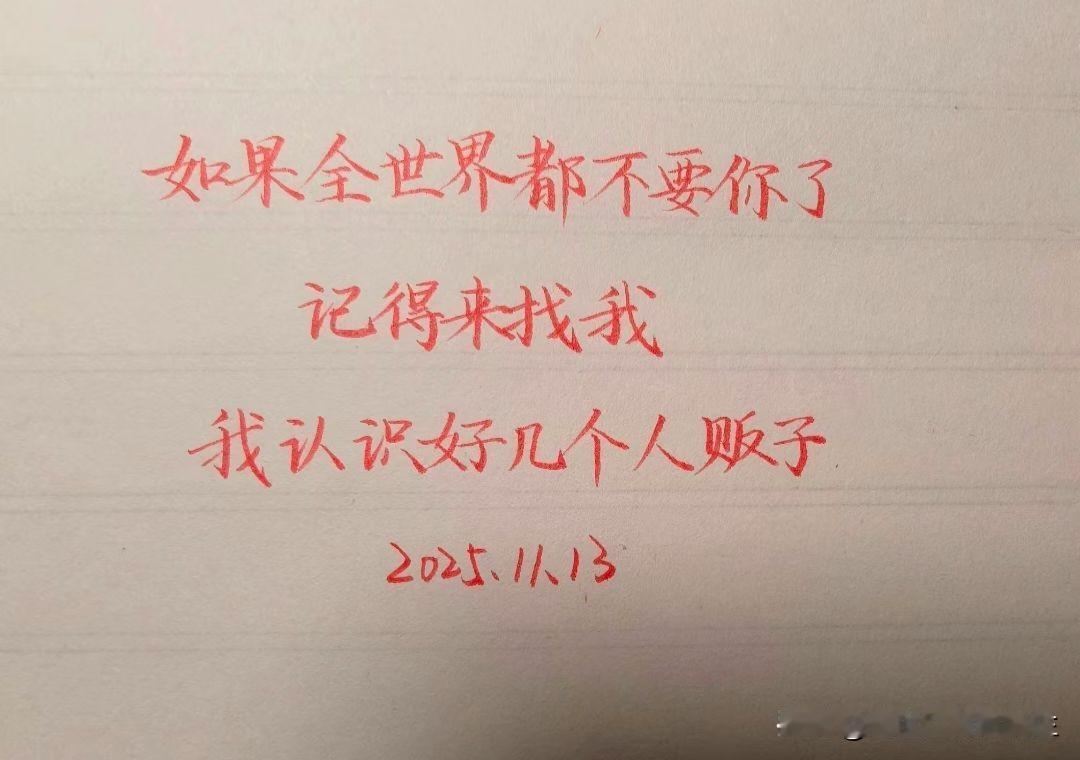 如果全世界都不要你了
记得来找我
我认识好几个人贩子
2025.11.13